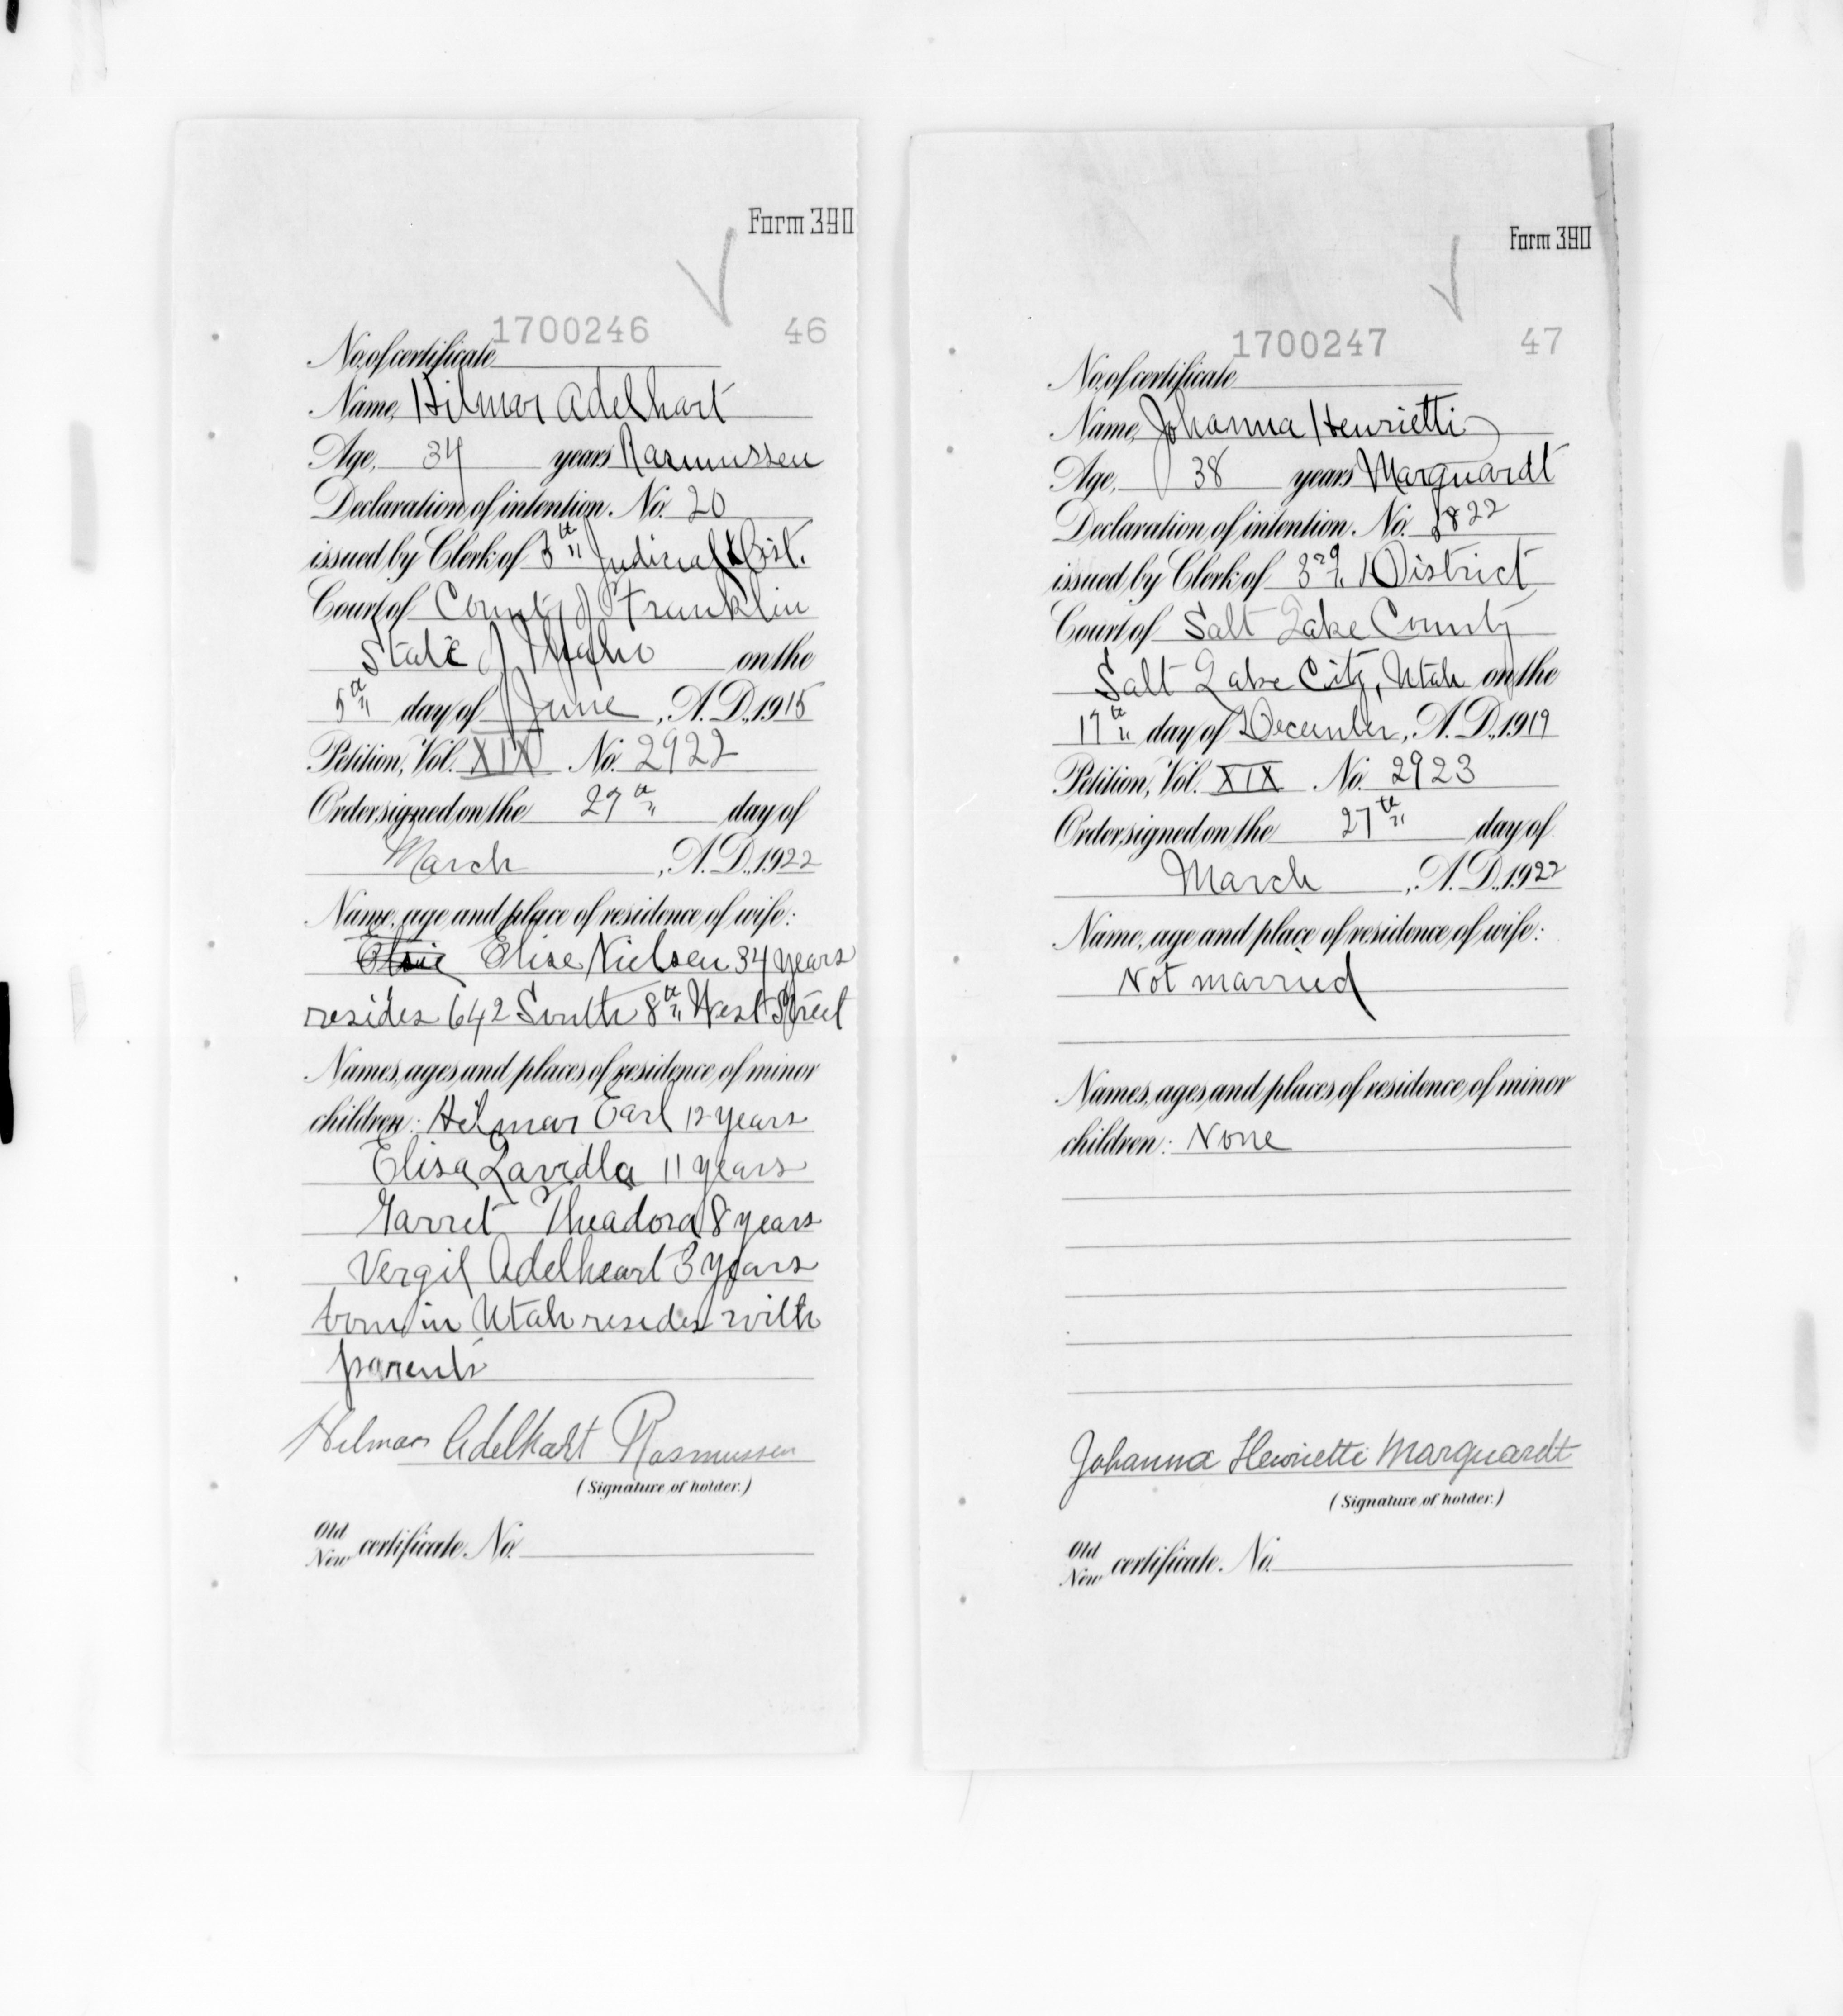 Form 390
1700246 46
No. of certificate
Name, Hilmar Adelhart
Age, 34 years Rasmussen
Declaration of intention, No. 20
issued by Clerk of 5th Judicial Dist.
Court of County of Franklin
State of Idaho on the
5th day of June, A. D., 1915
Petition, Vol. XIX No. 2922
Order signed on the 27th day of
March, A. D., 1922
Name, age and place of residence of wife:
Elsie Elise Nielsen 34 years
resides 642 South 8th West Street
Names, ages and places of residence of minor
children: Hilmar Earl 12 years
Elisa Lavidla 11 years
Garret Theadora 8 years
Vergil Adelheart 3 years
born in Utah resides with
parents
Hilmar Adelhart Rasmussen
(Signature of holder.)
Old
New certificate No.
Form 390
1700247 47
No. of certificate
Name, Johanna Henrietti
Age, 38 years Marquardt
Declaration of intention, No. 8822
issued by Clerk of 3rd District
Court of Salt Lake County
Salt Lake City, Utah on the
17th day of December, A. D., 1919
Petition, Vol. XIX No. 2923
Order signed on the 27th day of
March, A. D., 1922
Name, age and place of residence of wife:
Not married
Names, ages and places of residence of minor
children: None
Johanna Henrietti Marquardt
(Signature of holder.)
Old
New certificate. No.